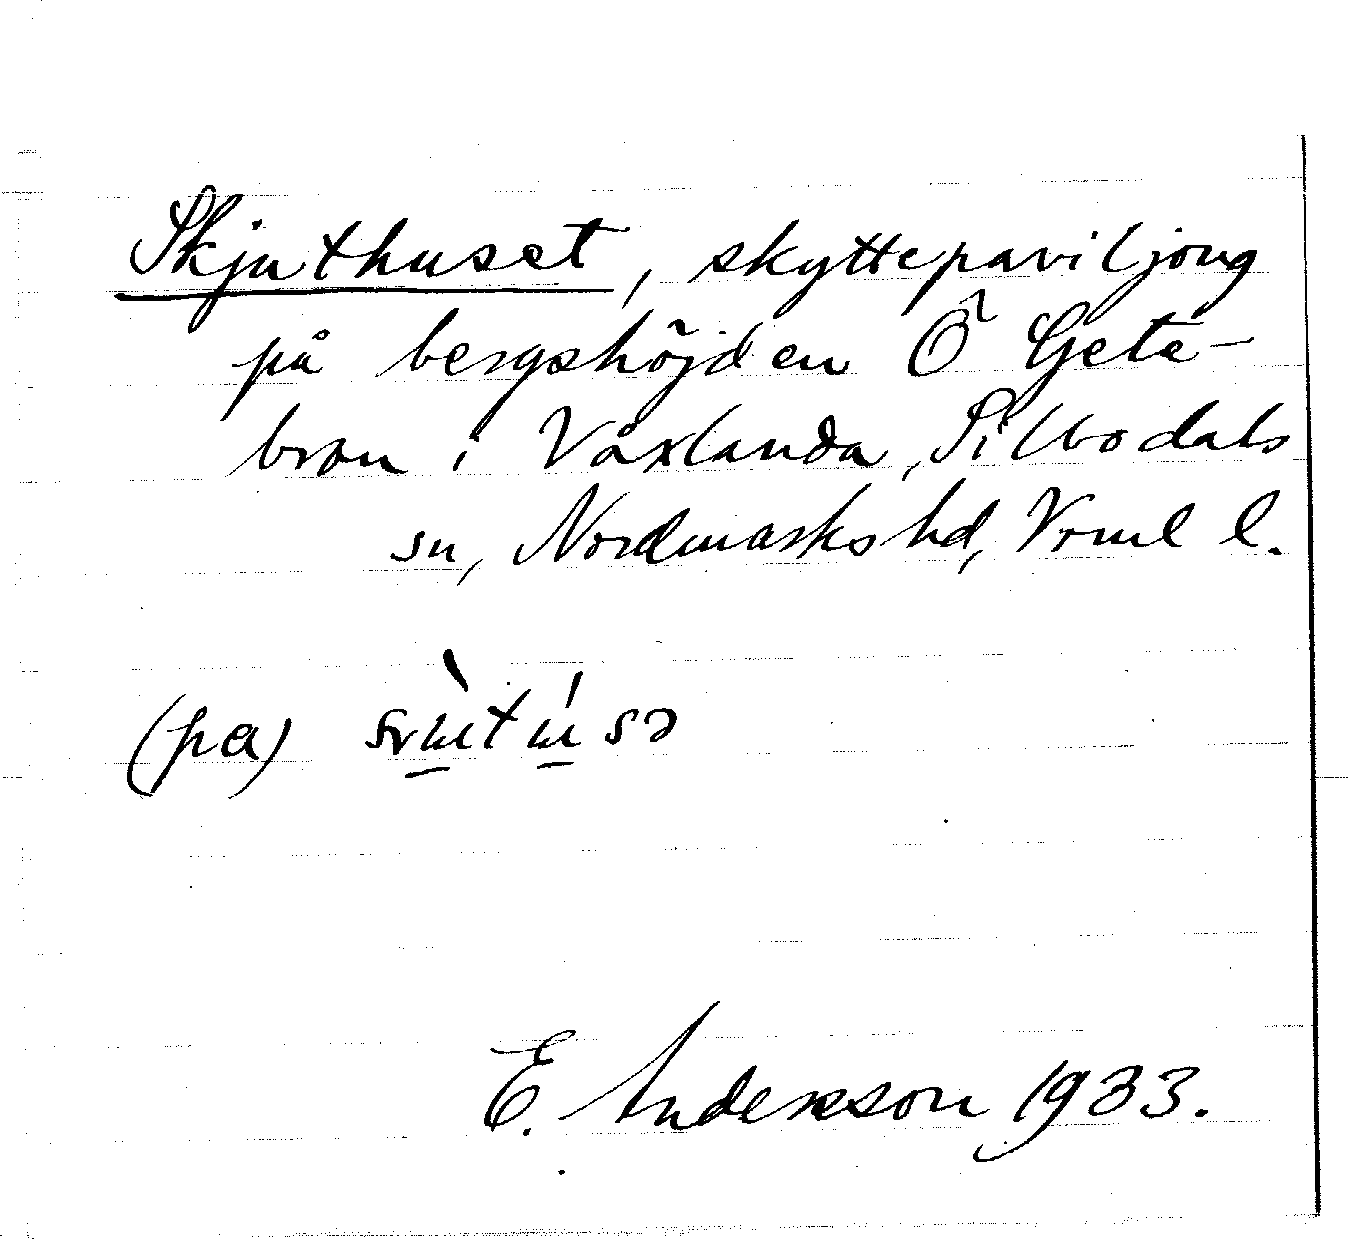 Skjuthuset, skyttepaviljong
på bergshöjden Ö Geta-
bron i Växlanda, Silbodals
sn, Nordmarks hd, Vrml l.
(pa)
E. Andersson 1933.